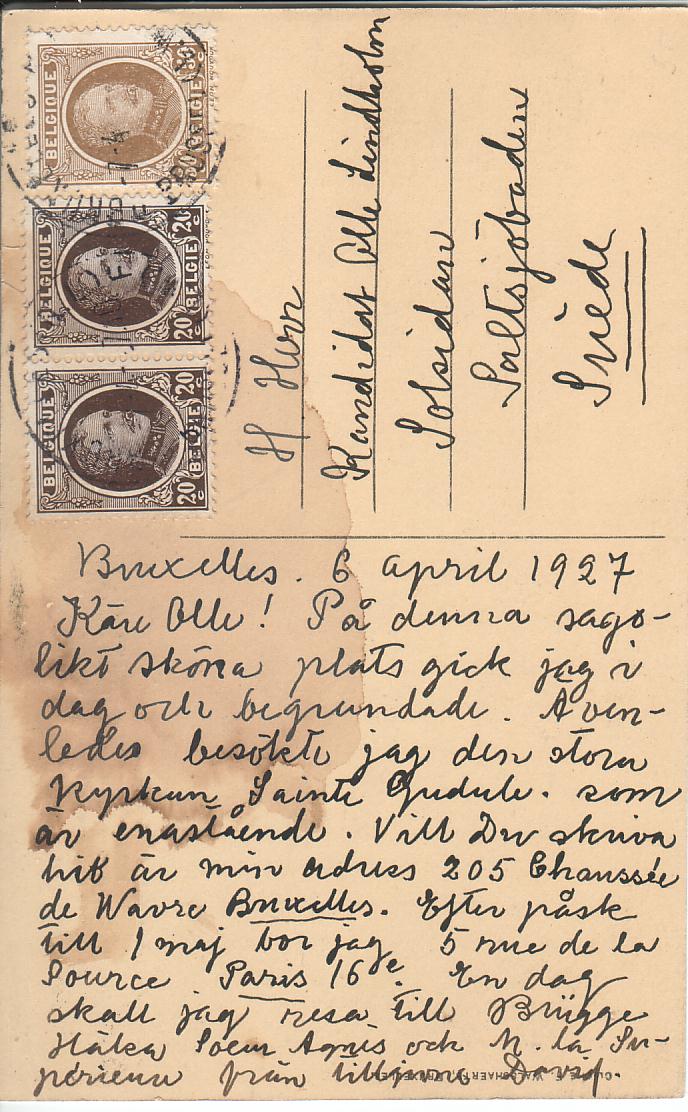 BELGIQUE
30 C
BELGIË
BELGIQUE
20 C
20
BELGIË
BELGIQUE
20 C
20
BELGIË
H Herr
Kandidat Olle Lindholm
Solsidan
Saltsjöbaden
Suède
Bruxelles. 6 april 1927
Käre Olle! På denna sago-
likt sköna plats gick jag i
dag och begrundade. Även-
ledes besökte jag den stora
kyrkan Sainte Gudule. som
är enastående. Vill Du skriva
hit är min adress 205 Chaussée
de Wavre Bruxelles. Efter påsk
till 1 maj bor jag 5 rue de la
Source Paris 16e. En dag
skall jag resa till Brügge
Hälsa Soeur Agnès och M. la Su-
périeure från tillgivne